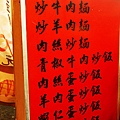 炒牛肉麵
炒羊肉麵
青椒牛肉炒飯
肉絲蛋炒飯
牛肉蛋炒飯
羊肉蛋炒飯
蝦仁蛋炒飯